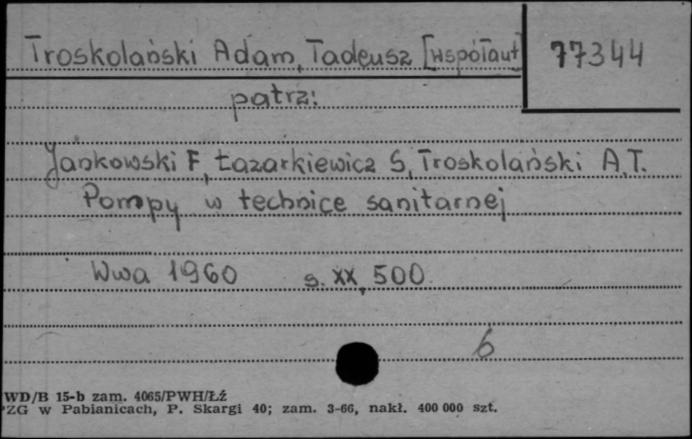 Troskolański Adam, Tadeusz [współaut] 77344
patrz:
Jankowski F, Łazarkiewicz S, Troskolański A.T.
Pompy w technice sanitarnej
Wwa 1960 s. XX, 500
6
WD/B 15-b zam. 4065/PWH/Łź
PZG w Pabianicach, P. Skargi 40; zam. 3-66, nakł. 400 000 szt.